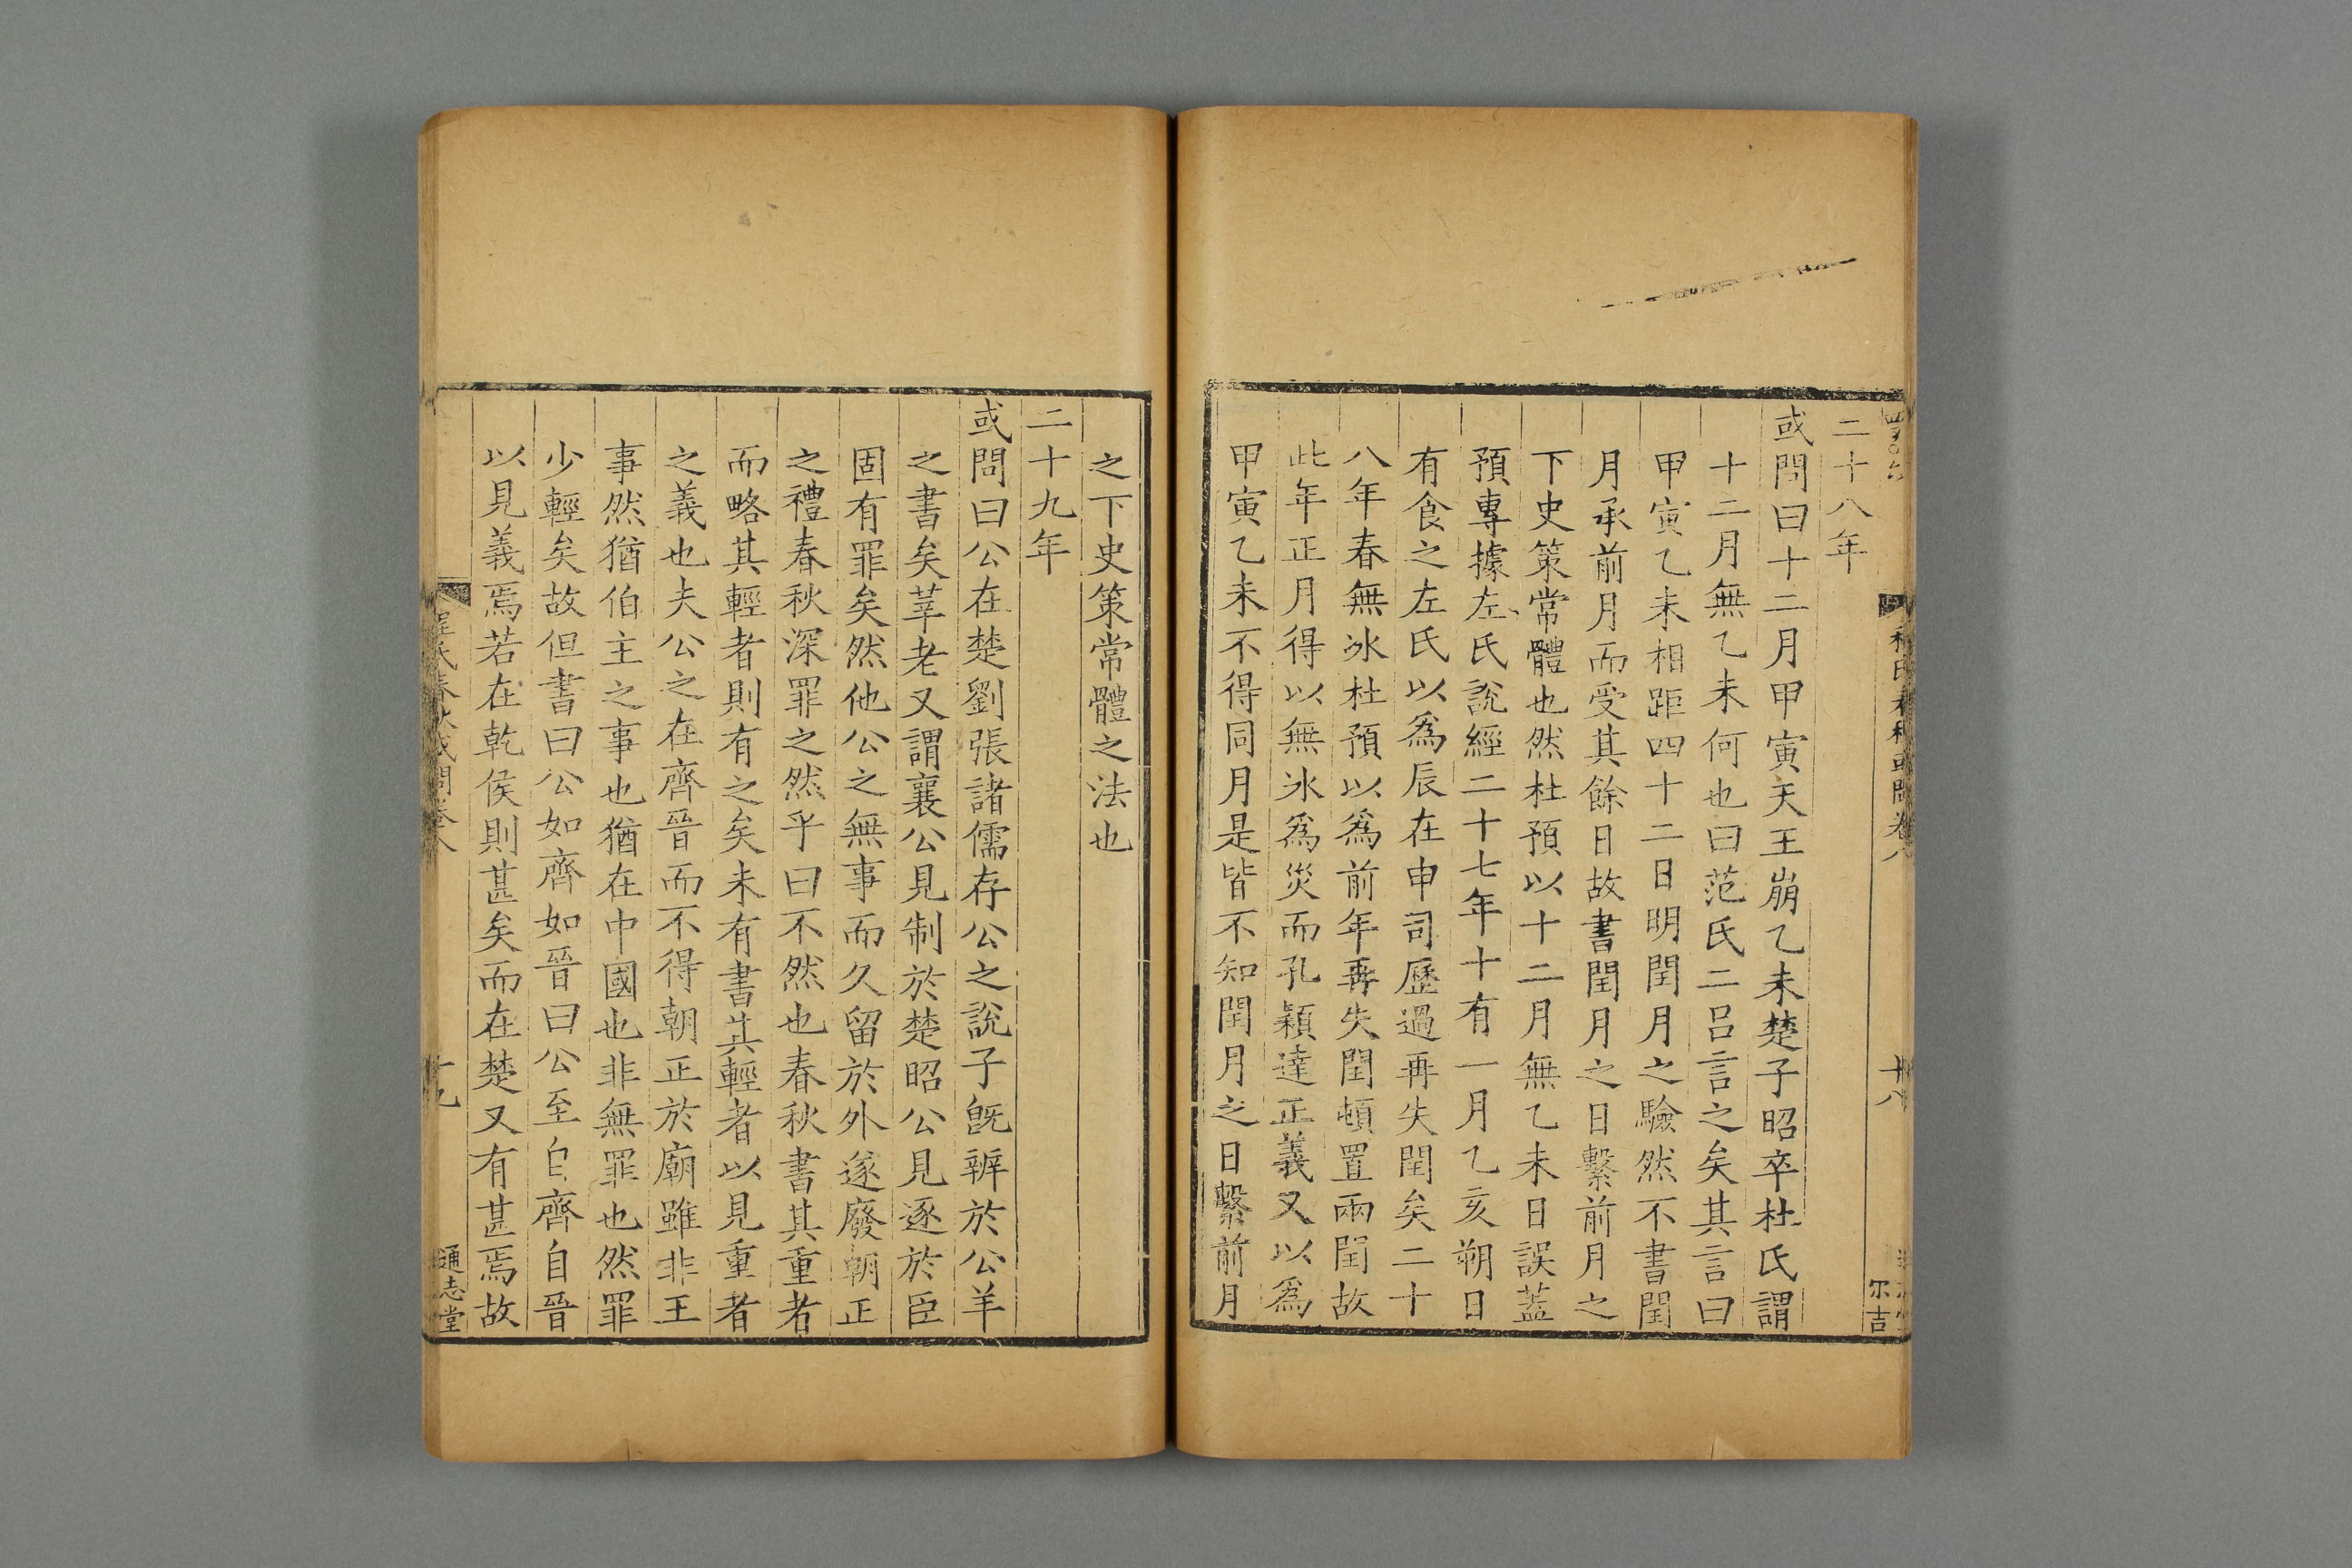 二十八年
或問曰十二月甲寅天王崩乙未楚子昭卒杜氏謂
十二月無乙未何也曰范氏二呂言之矣其言曰
甲寅乙未相距四十二日明閏月之驗然不書閏
月承前月而受其餘日故書閏月之日繫前月之
下史策常體也然杜預以十二月無乙未日誤蓋
預專據左氏說經二十七年十有一月乙亥朔日
有食之左氏以爲辰在申司歷過再失閏矣二十
八年春無冰杜預以爲前年再失閏頓置兩閏故
此年正月得以無冰爲災而孔穎達正義又以爲
甲寅乙未不得同月是皆不知閏月之日繫前月
十八
尔吉
之下史策常體之法也
二十九年
或問曰公在楚劉張諸儒存公之說子旣辨於公羊
之書矣莘老又謂襄公見制於楚昭公見逐於臣
固有罪矣然他公之無事而久留於外遂廢朝正
之禮春秋深罪之然乎曰不然也春秋書其重者
而略其輕者則有之矣未有書其輕者以見重者
之義也夫公之在齊晉而不得朝正於廟雖非王
事然猶伯主之事也猶在中國也非無罪也然罪
少輕矣故但書曰公如齊如晉曰公至自齊自晉
以見義焉若在乾侯則甚矣而在楚又有甚焉故
程氏春秋或問卷八
十九
通志堂